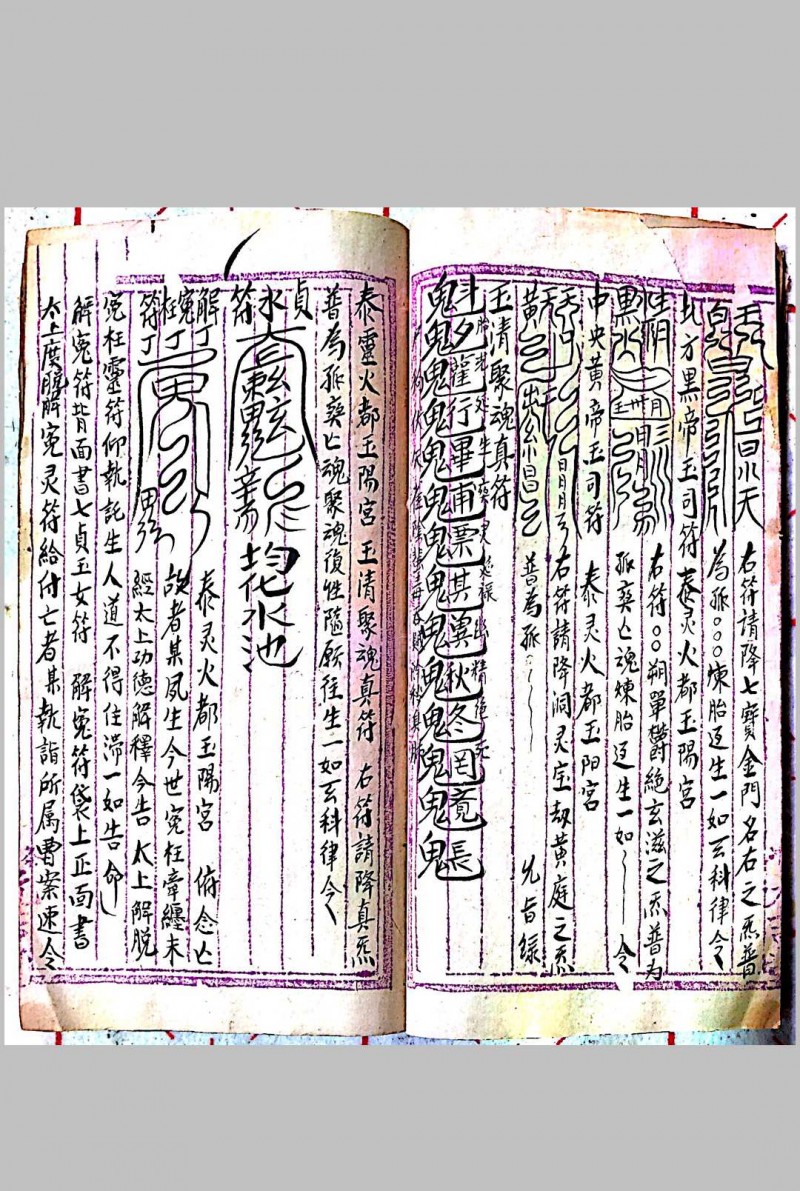 右符請降七寶金門名右之炁普
為孤〇〇〇煉胎迈生一如玄科律令
北方黑帝玉司符 泰灵火都玉陽宮
右符〇〇朔單鬱絕玄滋之炁普为
孤爽亡魂煉胎迈生一如 令
中央黃帝玉司符 泰灵火都玉阳宮
右符請降洞灵宝劫黄庭之炁
普為孤 允旨缘
玉清聚魂真符
鬼鬼鬼鬼鬼鬼鬼鬼鬼鬼鬼鬼鬼
泰靈火都玉陽宮 玉清聚魂真符 右符請降真炁
普為孤爽亡魂聚魂復性隨願往生一如玄科律令
貞水符 均花水池
解冤枉符 泰灵火都玉陽宮 俯念亡
故者某夙生今世冤枉牽纏未
經太上功德解釋今告太上解脫
冤枉靈符仰執託生人道不得住滞一如告命
解冤符背面書七貞玉女符 解冤符袋上正面書
太上度脫解冤灵符給付亡者某執詣所属曹案速令